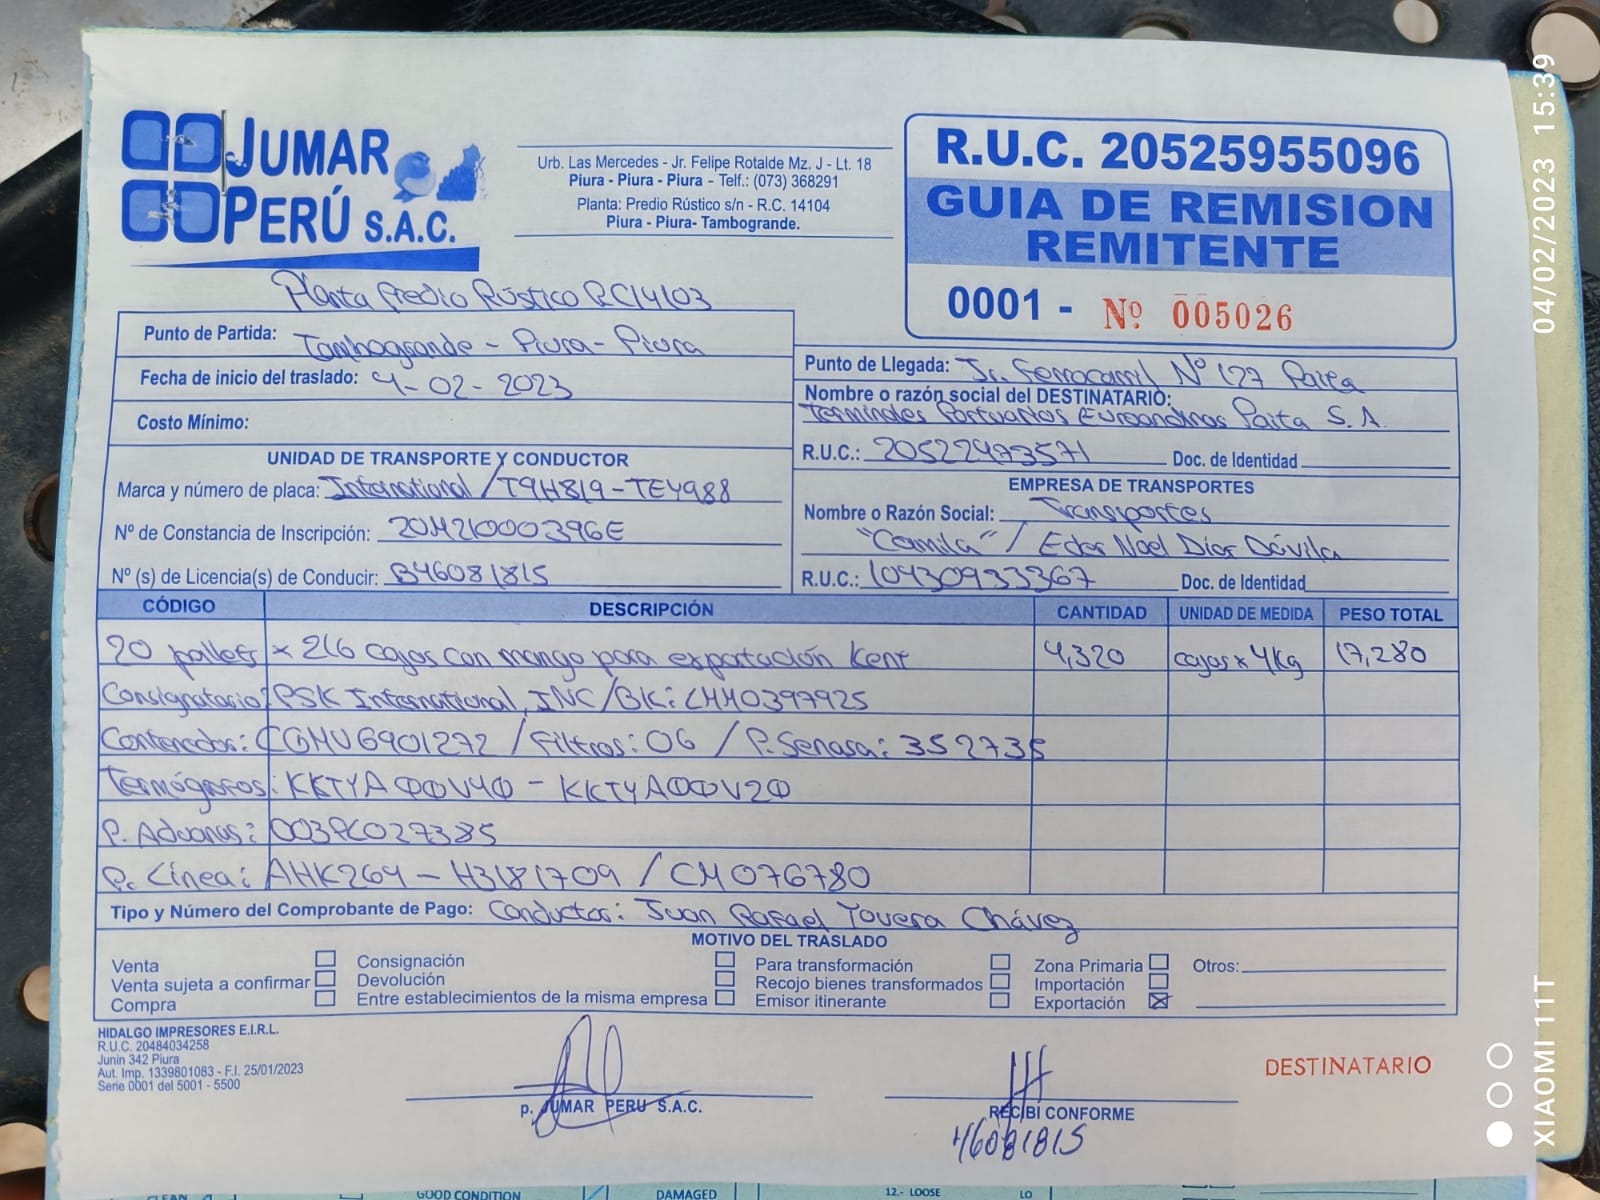 JUMAR
PERÚ S.A.C.
Urb. Las Mercedes - Jr. Felipe Rotalde Mz. J - Lt. 18
Piura - Piura - Piura - Telf.: (073) 368291
Planta: Predio Rústico s/n - R.C. 14104
Piura - Piura- Tambogrande.
R.U.C. 20525955096
GUIA DE REMISION
REMITENTE
0001 - Nº 005026
Planta Predio Rústico RC14103
Punto de Partida: Tambogrande - Piura - Piura
Fecha de inicio del traslado: 4-02-2023
Costo Mínimo:
Punto de Llegada: Jr. Ferrocarril Nº 127 Paita
Nombre o razón social del DESTINATARIO:
Terminales Portuarios Euroandinos Paita S.A.
R.U.C.: 20522473571 Doc. de Identidad
UNIDAD DE TRANSPORTE Y CONDUCTOR
Marca y número de placa: International / T9H819-TE4988
Nº de Constancia de Inscripción: 20M21000396E
Nº (s) de Licencia(s) de Conducir: B46081815
EMPRESA DE TRANSPORTES
Nombre o Razón Social: Transportes
"Camila" / Eder Noel Dios Dávila
R.U.C.: 10430933367 Doc. de Identidad
CÓDIGO DESCRIPCIÓN CANTIDAD UNIDAD DE MEDIDA PESO TOTAL
20 pallets x 216 cajas con mango para exportación Kent 4,320 cajas x 4Kg 17,280
Consignatario: PSK International, INC/BK: LMM0397925
Contenedor: CGMU6901272 / Filtros: 06 / P. Senasa: 352735
Termógrafos: KKTYA00V40 - KKTYA00V20
P. Aduanas: 003PC027385
P. Línea: AHK264 - H3181709 / CM076780
Tipo y Número del Comprobante de Pago: Conductor: Juan Rafael Tovera Chávez
MOTIVO DEL TRASLADO
Venta Consignación Para transformación Zona Primaria Otros:
Venta sujeta a confirmar Devolución Recojo bienes transformados Importación
Compra Entre establecimientos de la misma empresa Emisor itinerante Exportación
HIDALGO IMPRESORES E.I.R.L.
R.U.C. 20484034258
Junin 342 Piura
Aut. Imp. 1339801083 - F.I. 25/01/2023
Serie 0001 del 5001 - 5500
p. JUMAR PERU S.A.C.
RECIBI CONFORME
46081815
DESTINATARIO
GOOD CONDITION DAMAGED 12.- LOOSE LO
04/02/2023 15:39
XIAOMI 11T